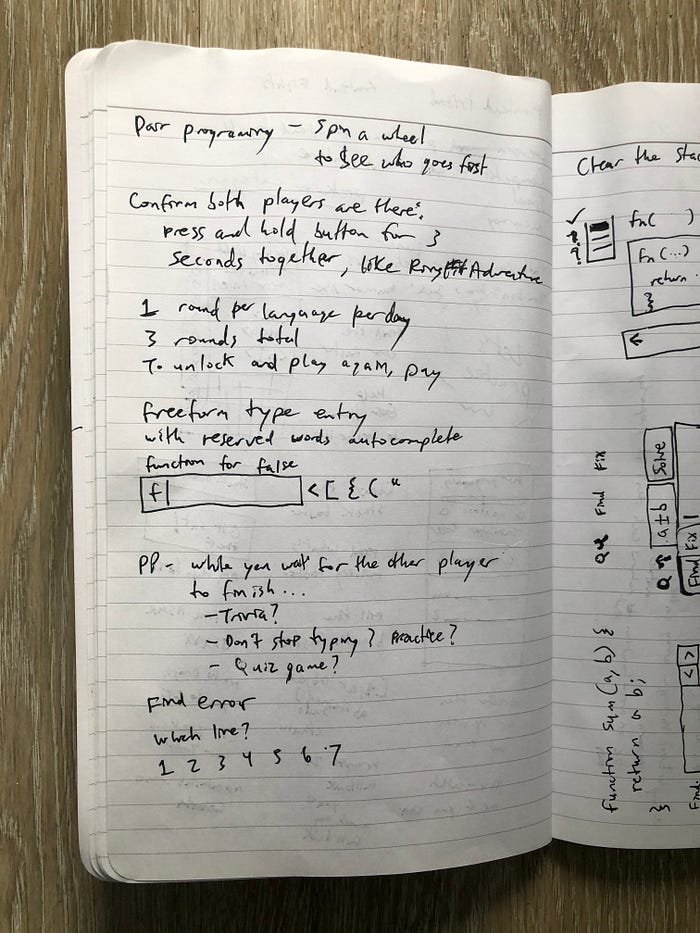 Pair programing - Spin a wheel
to See who goes first
Confirm both players are there:
press and hold button for 3
seconds together, like RingFit Adventure
1 round per language per day
3 rounds total
To unlock and play again, pay
freeform type entry
with reserved words autocomplete
function for false
f| < [ { ( "
PP - while you wait for the other player
to finish...
- Trivia?
- Don't stop typing? Practice?
- Quiz game?
Find error
which line?
1 2 3 4 5 6 7
Clear the Stac
fn( )
fn(...)
return
}
←
Find Fix
a ± b Solve
Find Fix
function sum(a, b) {
return a b;
}
< >
Find